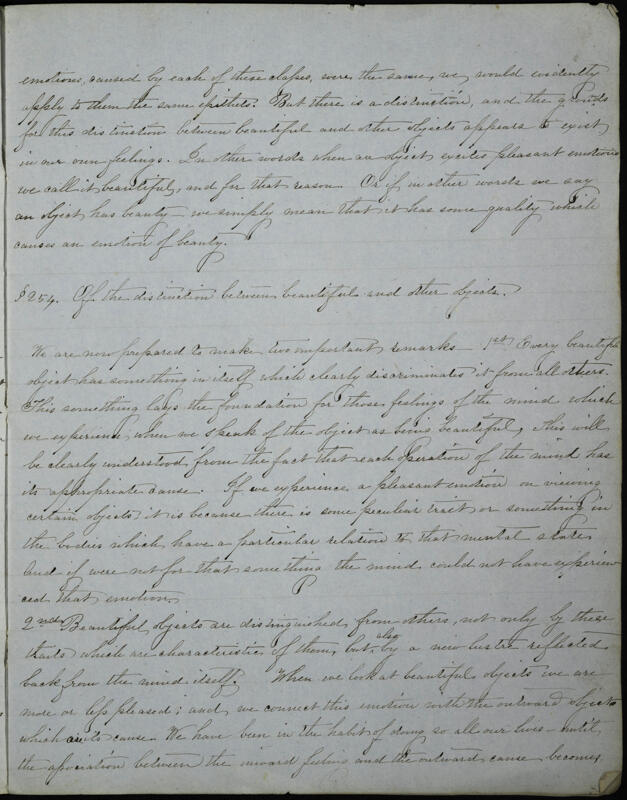 emotions, caused by each of these classes, were the same, we would evidently
apply to them the same epithets. But there is a distinction, and the grounds
for this distinction between beautiful and other objects appears to exist
in our own feelings. In other words when an object excites pleasant emotions
we call it beautiful, and for that reason. Or if in other words we say
an object has beauty - we simply mean that it has some quality which
causes an emotion of beauty.
§254. Of the distinction between beautiful and other objects.
We are now prepared to make two important remarks - 1st Every beautiful
object has something in itself which clearly discriminates it from all others.
This something lays the foundation for those feelings of the mind which
we experience, when we speak of the object as being beautiful, This will
be clearly understood, from the fact that each operation of the mind has
its appropriate cause. If we experience a pleasant emotion on viewing
certain objects it is because there is some peculiar trait or something in
the bodies which have a particular relation to that mental state
And if were not for that something the mind could not have experien
ced that emotion.
2nd Beautiful objects are distinguished from others, not only by these
traits which are characteristic of them, but, also by a new lustre reflected
back from the mind itself. When we look at beautiful objects we are
more or less pleased; and, we connect this emotion with the outward objects
which are its cause. We have been in the habit of doing so all our lives - until,
the association between the inward feeling and the outward cause becomes